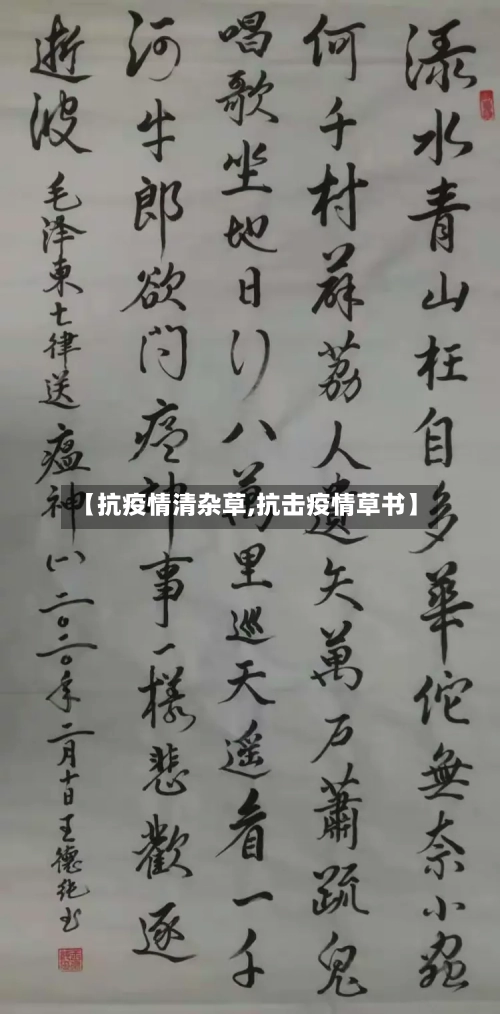 渌水青山枉自多華佗無奈小虫
何千村薜荔人遺矢萬户蕭疏鬼
唱歌坐地日行八萬里巡天遥看一千
河牛郎欲問瘟神事一樣悲歡逐
逝波
毛泽東七律送瘟神(一)二〇二〇年二月十日王德純书
【抗疫情清杂草,抗击疫情草书】